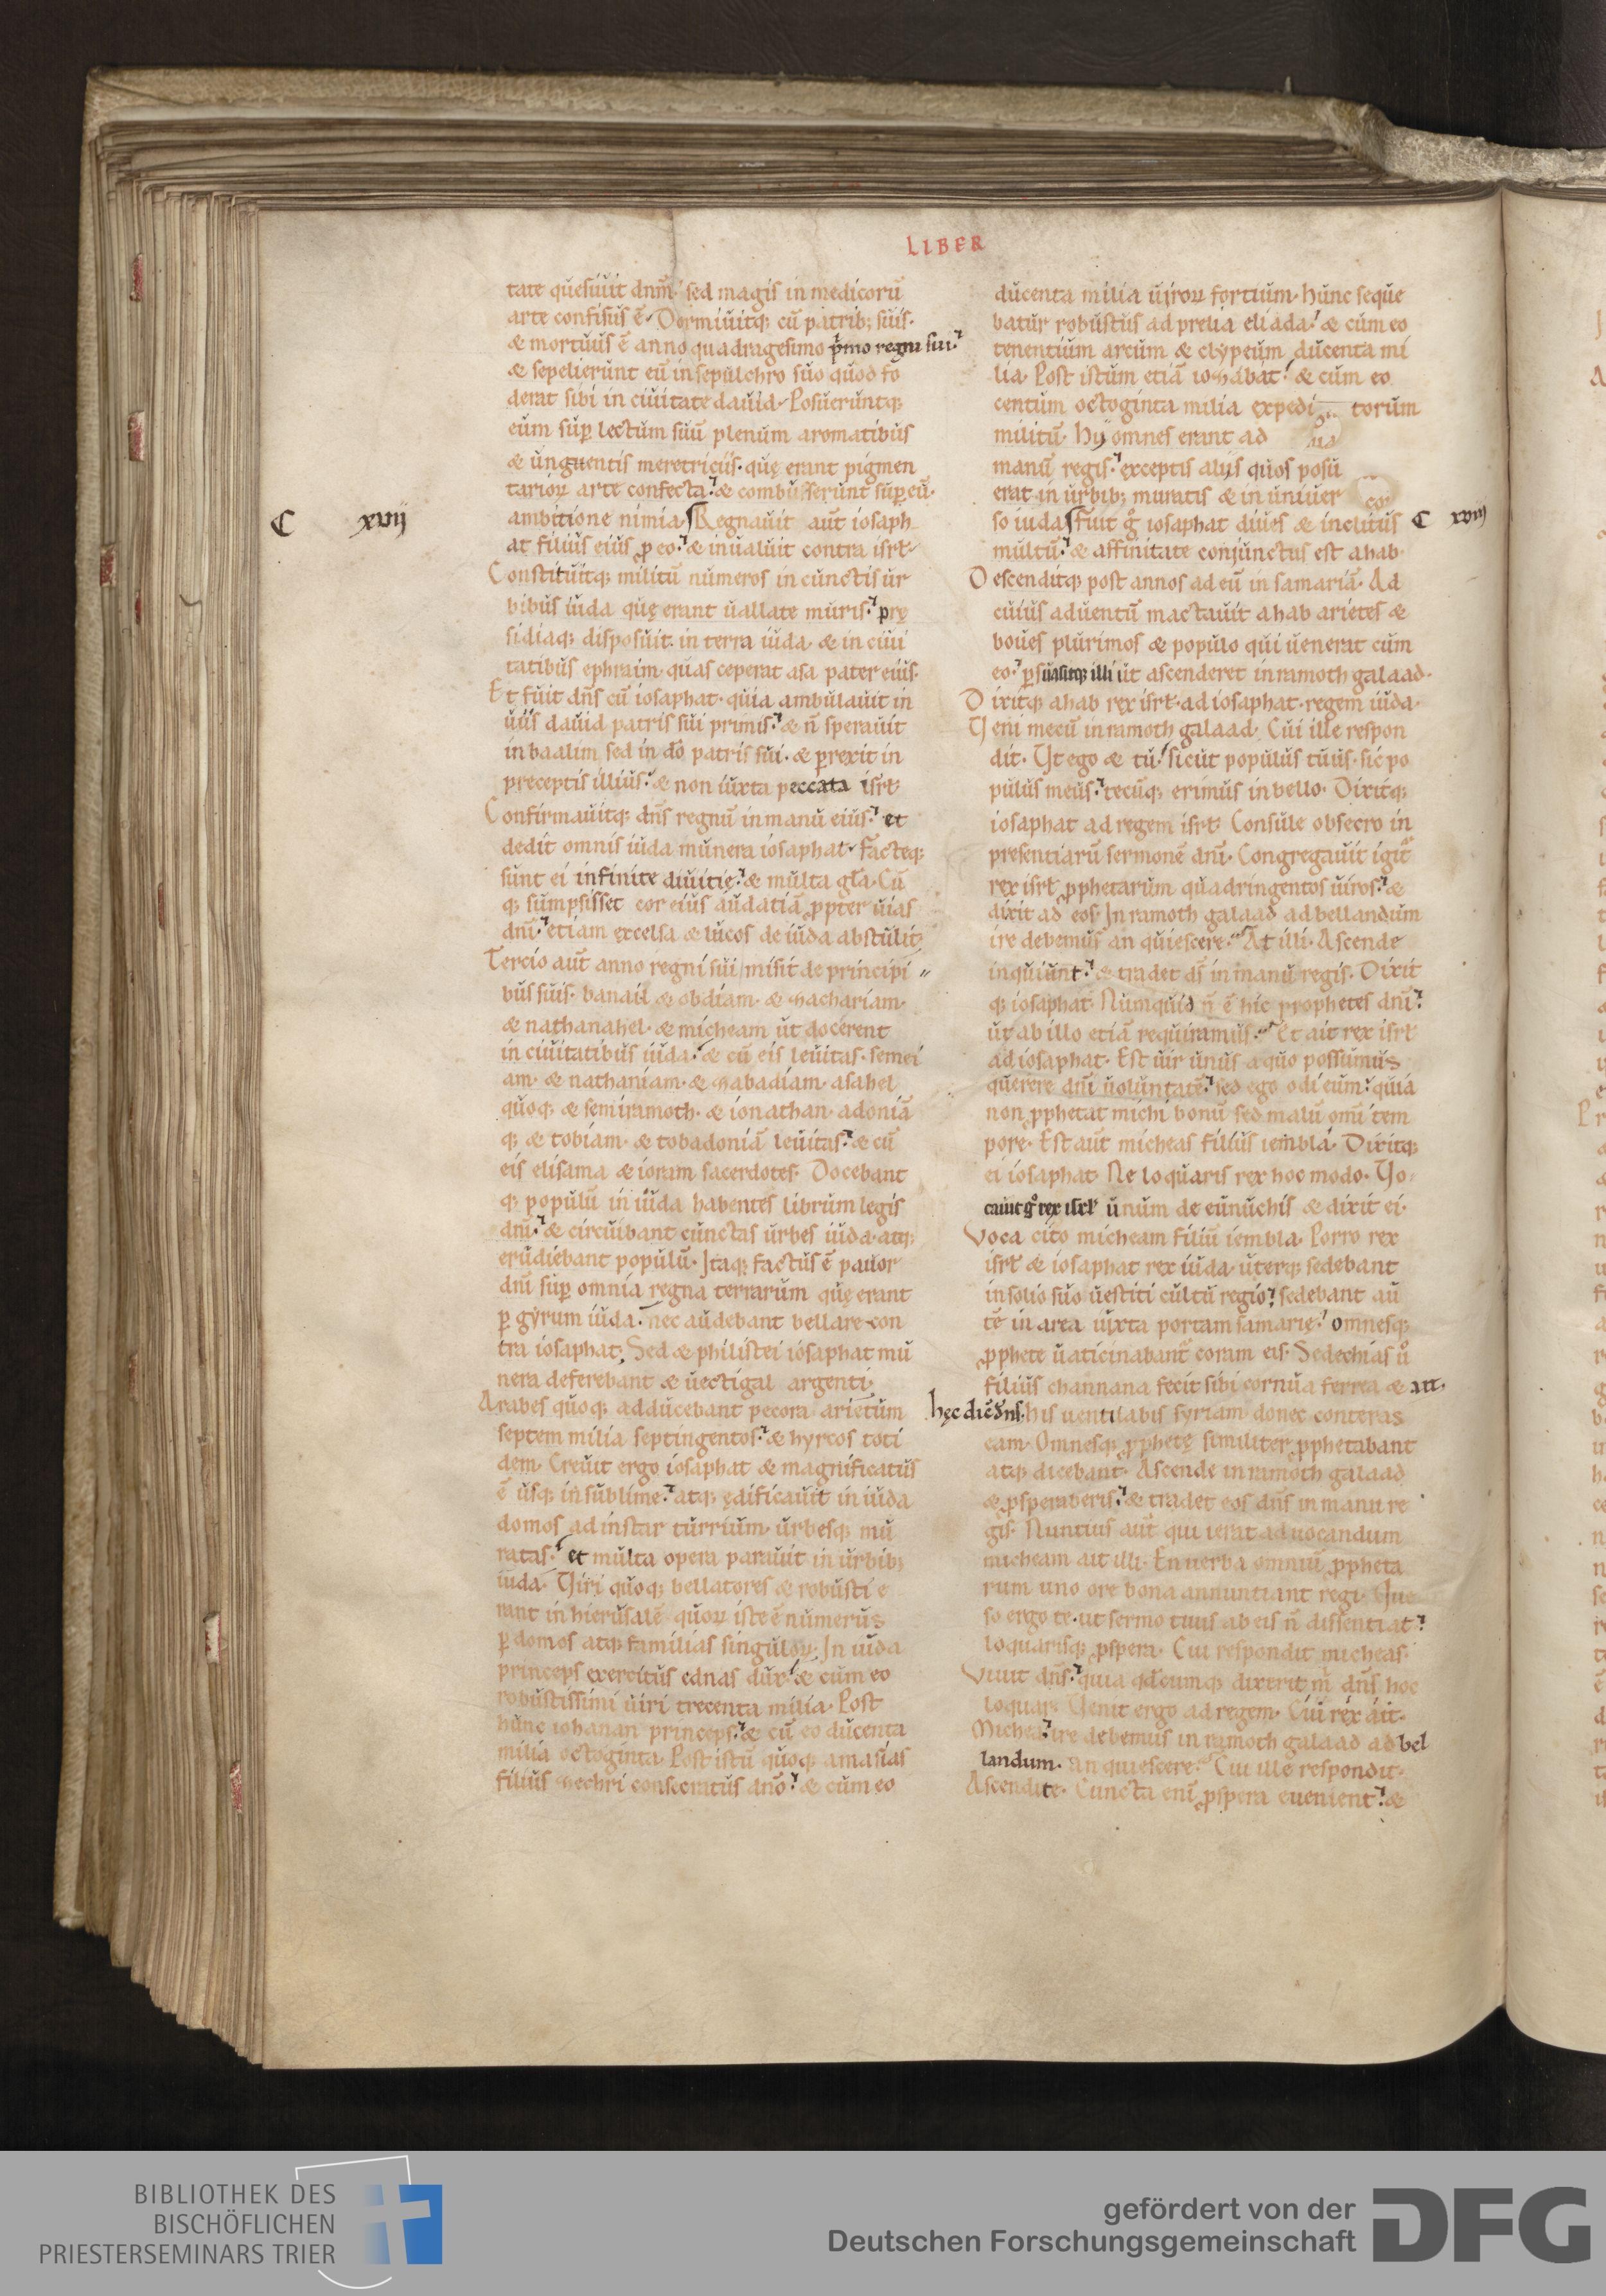 LIBER
tate quesiuit dnm̄. sed magis in medicorū
arte confisus ē. Dormiuitq; cū patrib; suis.
& mortuus ē anno quadragesimo p̍mo regni sui.
& sepelierunt eū in sepulchro suo quod fo
derat sibi in ciuitate dauid. Posueruntq;
eum suꝑ lectum suū plenum aromatibus
& unguentis meretriciis. quę erant pigmen
tarioꝝ arte confecta. & combusserunt suꝑ eū.
ambitione nimia. Regnauit aut̄ iosaph
C xvij
at filius eius ꝓ eo. & inualuit contra isrł.
Constituitq; militū numeros in cunctis ur
bibus iuda quę erant uallate muris. prę
sidiaq; disposuit in terra iuda. & in ciui
tatibus ephraim. quas ceperat asa pater eius.
Et fuit dns̄ cū iosaphat. quia ambulauit in
uiis dauid patris sui primis. & n̄ sperauit
in baalim sed in dō patris sui. & ꝑrexit in
preceptis illius. & non iuxta peccata isrł.
Confirmauitq; dns̄ regnū in manu eius. et
dedit omnis iuda munera iosaphat. Facteq;
sunt ei infinite diuitię. & multa gła. Cū
q; sumpsisset cor eius audatiā ꝓpter uias
dnī. etiam excelsa & lucos de iuda abstulit.
Tercio aut̄ anno regni sui misit de principi
bus suis. banail & obdiam. & zachariam.
& nathanahel. & micheam ut docerent
in ciuitatibus iuda. & cū eis leuitas. semei
am. & nathaniam. & zabadiam. asahel
quoq; & semiramoth. & ionathan. adoniā
q; & tobiam. & tobadoniā leuitas. & cū
eis elisama & ioram sacerdotes. Docebant
q; populū in iuda habentes librum legis
dnī. & circuibant cunctas urbes iuda. atq;
erudiebant populū. Itaq; factus ē pauor
dnī suꝑ omnia regna terrarum quę erant
ꝑ gyrum iuda. nec audebant bellare con
tra iosaphat. Sed & philistei iosaphat mu
nera deferebant & uectigal argenti.
Arabes quoq; adducebant pecora. arietum
septem milia septingentos. & hyrcos toti
dem. Creuit ergo iosaphat & magnificatus
ē usq; in sublime. atq; ędificauit in iuda
domos ad instar turrium. urbesq; mu
ratas. et multa opera parauit in urbib;
iuda. Uiri quoq; bellatores & robusti e
rant in hierusalē quoꝝ iste ē numerus
ꝑ domos atq; familias singuloꝝ. In iuda
princeps exercitus ednas dux. & cum eo
robustissimi uiri trecenta milia. Post
hunc iohanan princeps. & cū eo ducenta
milia octoginta. Post istū quoq; amasias
filius zechri consecratus dnō. & cum eo
ducenta milia uiroꝝ fortium. Hunc seque
batur robustus ad prelia eliada. & cum eo
tenentium arcum & clypeum ducenta mi
lia. Post istum etiā iozabat. & cum eo
centum octoginta milia expedi torum
militū. Hij omnes erant ad
manū regis. exceptis alijs quos posu
erat in urbib; muratis & in uniuer
so iuda. Fuit g° iosaphat diues & inclitus
C xviij
multū. & affinitate conjunctus est ahab.
Descenditq; post annos ad eū in samariā. Ad
cuius aduentū mactauit ahab arietes &
boues plurimos & populo qui uenerat cum
eo. ꝑsuasitq; illi ut ascenderet in ramoth galaad.
Dixitq; ahab rex isrł. ad iosaphat. regem iuda.
Ueni mecū in ramoth galaad. Cui ille respon
dit. Ut ego & tu. sicut populus tuus. sic po
pulus meus. tecūq; erimus in bello. Dixitq;
iosaphat ad regem isrł. Consule obsecro in
presentiarū sermonē dnī. Congregauit igit̄
rex isrł ꝓphetarum quadringentos uiros. &
dixit ad eos. In ramoth galaad ad bellandum
ire debemus an quiescere. At illi. Ascende
inquiunt. & tradet ds̄ in manū regis. Dixit
q; iosaphat. Numquid n̄ ē hic prophetes dnī.
ut ab illo etiā requiramus. Et ait rex isrł
ad iosaphat. Est uir unus a quo possumus
querere dnī uoluntatē. sed ego odi eum. quia
non ꝓphetat michi bonū sed malū omī tem
pore. Est aut̄ micheas filius iembla. Dixitq;
ei iosaphat. Ne loquaris rex hoc modo. Uo
cauit g° rex isrł unum de eunuchis & dixit ei.
Voca cito micheam filiū iembla. Porro rex
isrł & iosaphat rex iuda. uterq; sedebant
in solio suo uestiti cultu regio. sedebant au
tē in area iuxta portam samarię. omnesq;
ꝓphete uaticinabant̄ coram eis. Sedechias u°
filius channana fecit sibi cornua ferrea & ait.
hęc dic̄ dns̄. his uentilabis syriam donec conteras
eam. Omnesq; ꝓphetę similiter ꝓphetabant
atq; dicebant. Ascende in ramoth galaad
& ꝓsperaberis. & tradet eos dns̄ in manu re
gis. Nuntius aut̄ qui ierat ad uocandum
micheam ait illi. En uerba omniū ꝓpheta
rum uno ore bona annuntiant regi. Que
so ergo te. ut sermo tuus ab eis n̄ dissentiat.
loquarisq; ꝓspera. Cui respondit micheas.
Viuit dns̄. quia qdcumq; dixerit m̍ dns̄ hoc
loquar. Uenit ergo ad regem. Cui rex ait.
Michea. ire debemus in ramoth galaad ad bel
landum. an quiescere. Cui ille respondit.
Ascendite. Cuncta enī ꝓspera euenient. &
BIBLIOTHEK DES
BISCHÖFLICHEN
PRIESTERSEMINARS TRIER
gefördert von der
Deutschen Forschungsgemeinschaft
DFG